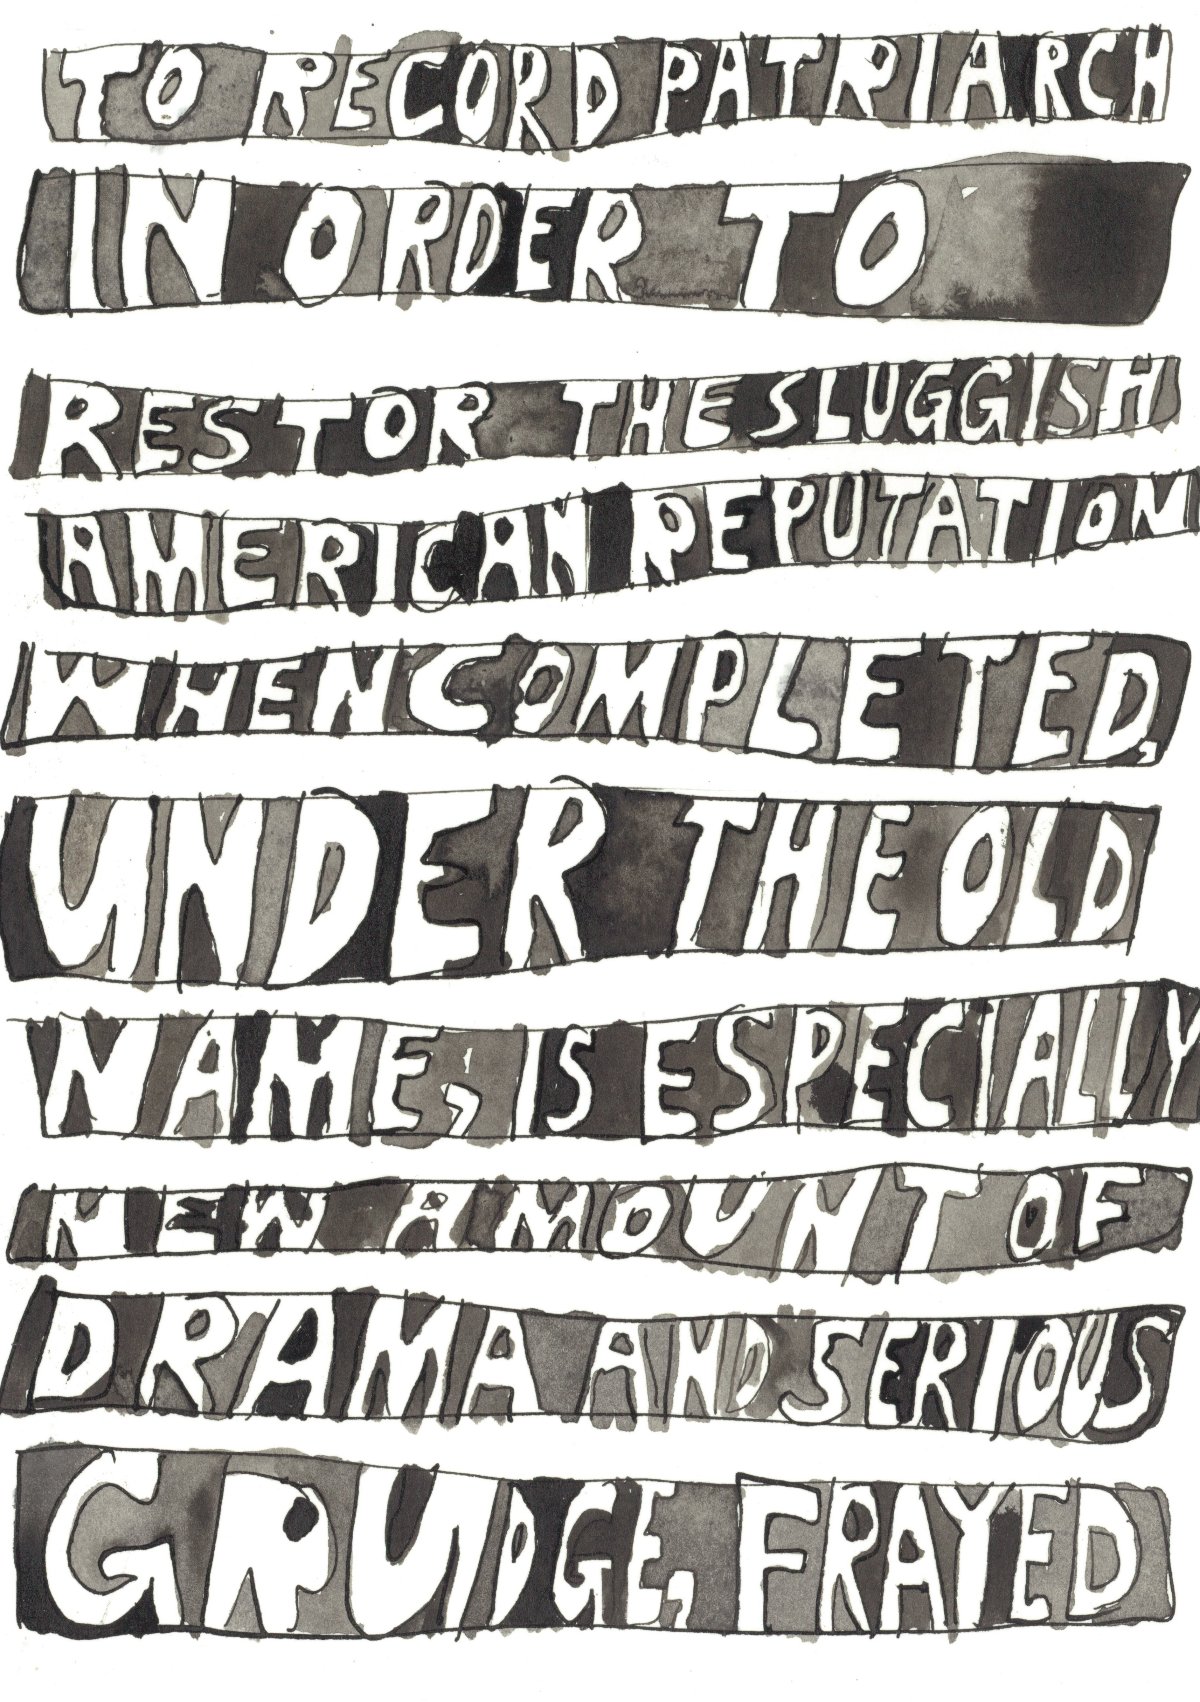 TO RECORD PATRIARCH
IN ORDER TO
RESTOR THE SLUGGISH
AMERICAN REPUTATION
WHEN COMPLETED,
UNDER THE OLD
NAME, IS ESPECIALLY
NEW AMOUNT OF
DRAMA AND SERIOUS
GRUDGE, FRAYED